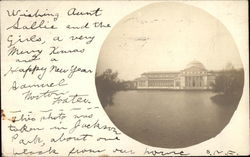 Wishing Aunt
Sallie and the
Girls, a very
Merry Xmas
and a
Happy New Year
Samuel
This photo was
taken in Jackson
Park, about one
block from our house